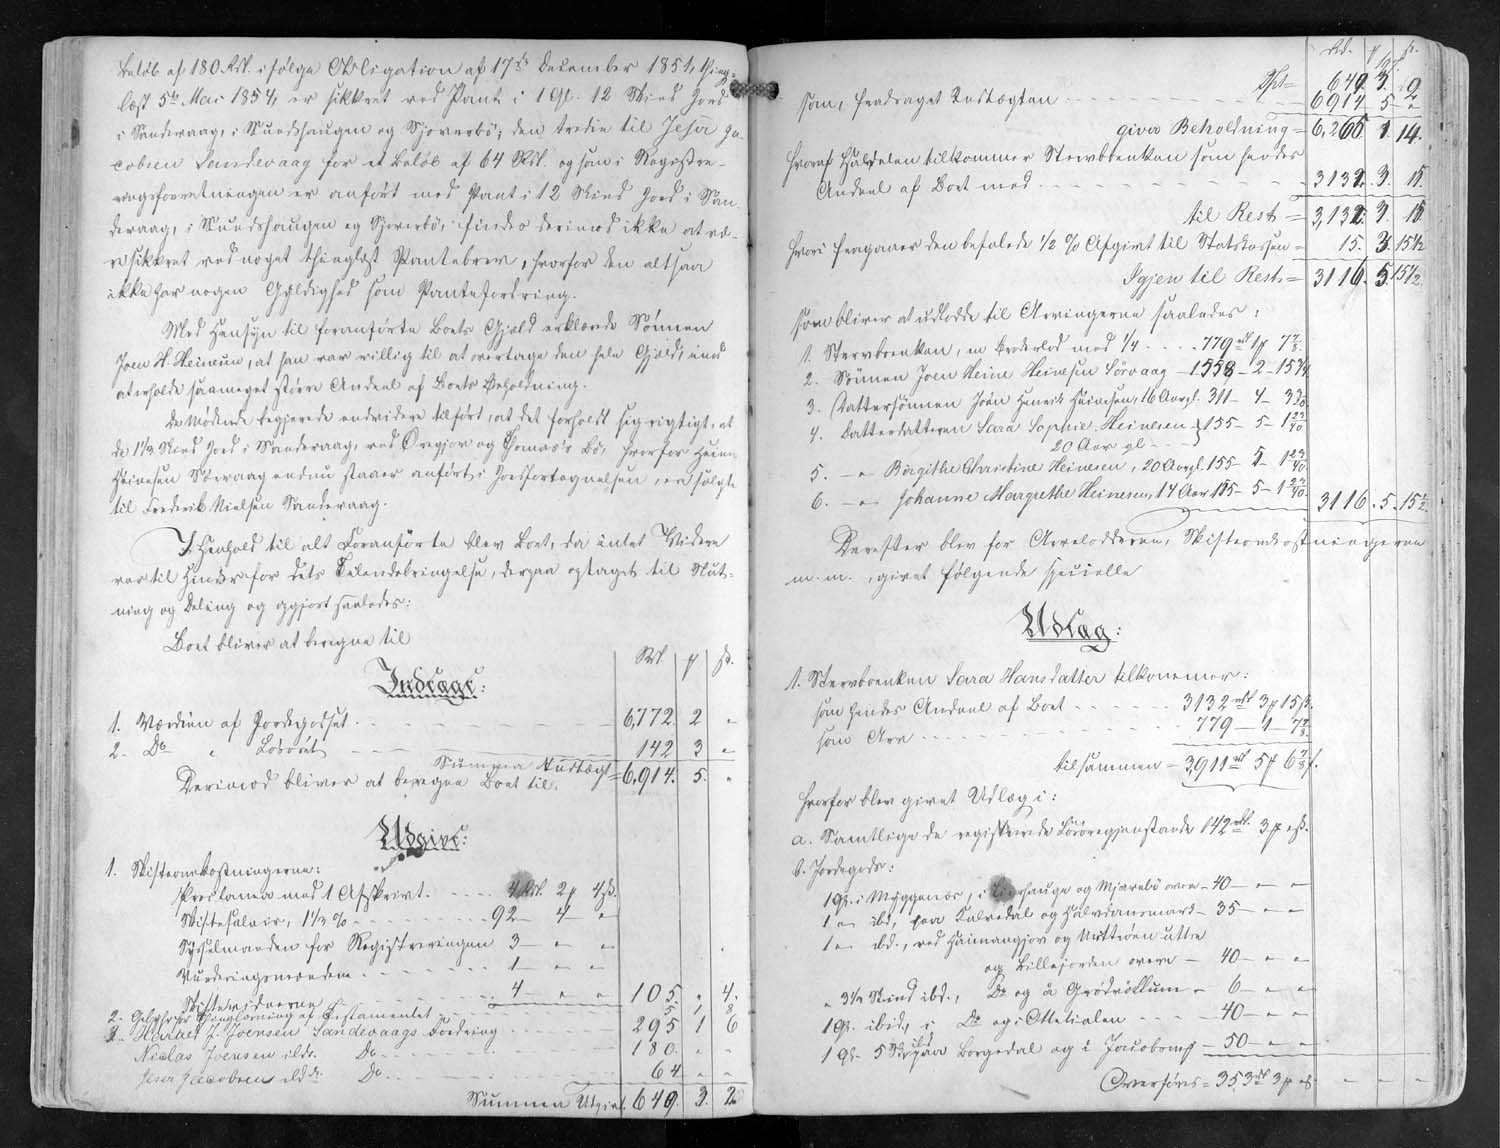 Beløb af 180 Rdl. ifølge Obligation af 17de December 1851, thing-
læst 5te Mai 1854, er sikkret ved Pant i 1 Gl. 12 Skind Jord
i Sandevaag, i Skuudshaugen og Gjoverbö; den tredie til Jesper Ja-
cobsen Sandevaag for et Beløb af 64 Rdl. og som i Registre-
ringsforretningen er anført med Pant i 12 Skind Jord i San-
devaag, i og Gjoverbö, findes derimod ikke at væ-
re sikkret ved noget thinglæst Pantebrev, hvorfor den altsaa
ikke har nogen Gyldighed som Pantefordring.
Med Hensyn til foranførte Boets Gjæld erklærede Sønnen
Joen H. Heinesen, at han var villig til at overtage den hele Gjæld, imod
at erholde saameget større Andeel af Boets Beholdning.
De Mødende begjerede endvidere tilført, at det forholdt sig rigtigt, at
de 1 1/3 Skind Jord i Sandevaag, ved og Thomas's Bö, hvorfor Heine
Heinesen Sörvaag endnu staaer anført i Jordfortegnelsen, er solgte
til Frederik Nielsen Sandevaag.
I Henhold til alt Foranførte blev Boet, da intet Videre
var til Hinder for dets Tilendebringelse, derpaa optaget til Slut-
ning og Deling og opgjort saaledes:
Boet bliver at beregne til
Indtægt:
Rdl. p ß.
1. Værdien af Jordegodset 6,772 2 "
2. Do " Løsøret 142 3 "
Summa Indtægt = 6,914. 5. "
Derimod bliver at beregne Boet til
Udgivt:
1. Skifteomkostningerne:
Proclama med 1 Afskrivt. 4 Rdl. 2 p 4 ß.
Skiftesalair, 1 1/3 % 92 - 4 "
Sysselmanden for Registreringen 3 - " "
Vurderingsmændene 1 - " "
Skiftevidnerne 4 - " " 105. " 4.
2. Gebyhr for Thinglæsning af Testamentet 5 1 8
3. J. Joensen Sandevaags Fordring 295 1 6
Niclas Joensen ibdr. Do 180. " "
Jesper Jacobsen ibdr. Do 64 " "
Summa Udgivt 649. 3. 2
Rd. p ß.
Spt = 649. 3. 2
som, fradraget Indtægten 6914. 5 "
giver Beholdning = 6,265 1. 14.
hvoraf Halvdelen tilkommer Stervboenken som hendes
Andeel af Boet med 3132. 3. 15.
til Rest = 3,132. 3. 15
hvori fragaaer den befalede 1/2 % Afgivt til Statskassen = 15. 3. 15 1/2
Igjen til Rest = 3116. 5. 15 1/2.
som bliver at udlodde til Arvingerne saaledes:
1. Stervboenken, en Broderlod med 1/4 779 rdl 1 p 7 7/8.
2. Sönnen Joen Heine Heinesen Sörvaag - 1558 - 2 - 15 3/4
3. Dattersönnen Joen Henrik Heinesen, 16 Aar gl. 311 - 4 - 3
4. Datterdatteren Sara Sophie Heinesen 20 Aar gl } 155 - 5 - 1 23/40
5. - " Birgithe Christine Heinesen, 20 Aar gl. 155 - 5 - 1 23/40
6. - " Johanne Margrethe Heinesen, 14 Aar 155 - 5 - 1 23/40. 3116. 5. 15 1/2
Derefter blev for Arvelodderne, Skifteomkostningerne
m. m., givet følgende specielle
Udlæg:
1. Stervboenken Sara Hansdatter tilkommer:
som hendes Andeel af Boet 3132 rdl 3 p 15 ß.
som Arv 779 - 1 - 7 7/8
tilsammen - 3,911 rdl 5 p 6 7/8 ß.
hvorfor blev givet Udlæg i:
a. Samtlige de registrerede Løsøregjenstande 142 rdl. 3 p " ß.
b. Jordegods:
1 Gl. i Myggenæs, i og Mjarebö øvre - 40 - " "
1 " ibd., paa Kalvedal og Halvdansmark - 35 - " "
1 " ibd., ved Heimangjov og uttre
og Lillejorden øvre - 40 - " "
" 3 1/2 Skind ibd., Do og à - 6 - " "
1 Gl. ibid, i Do og i 40 - " "
1 Gl. 5 Sk. ibd. paa Borgedal og i - 50 - " "
Overføres = 353 rdl 3 p " ß.